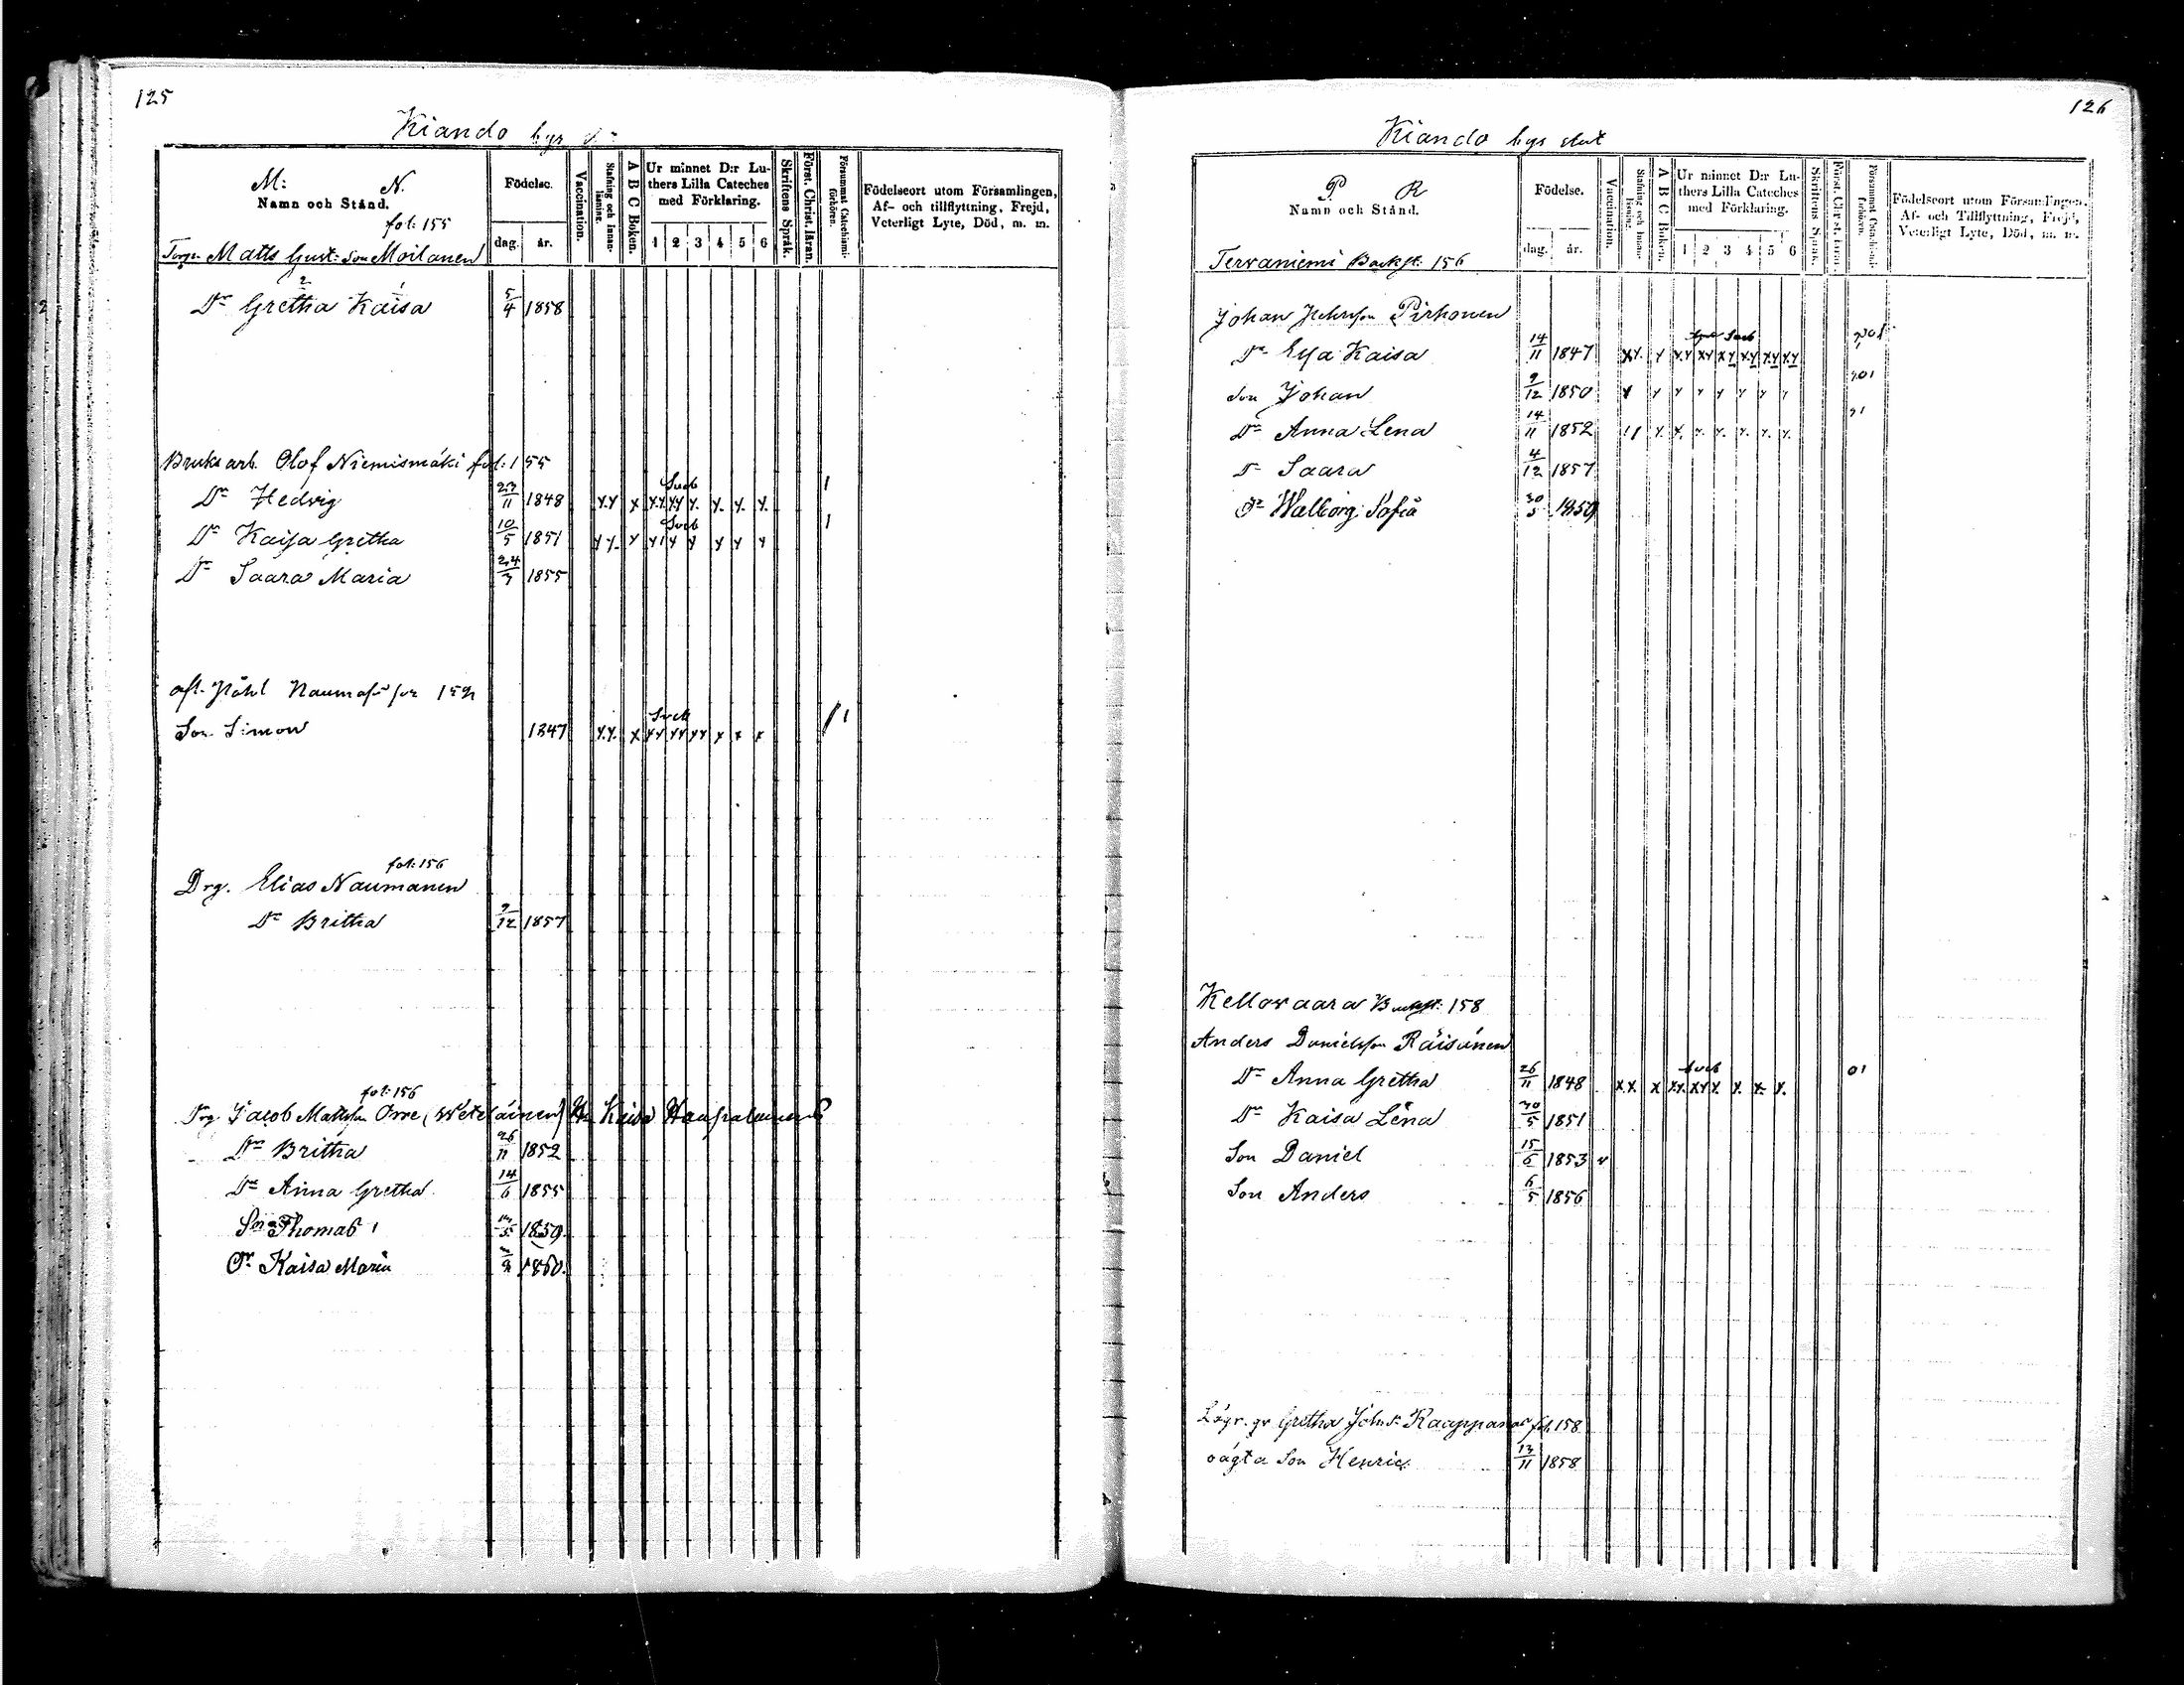 125
Kiando bys
M: N.
Namn och Stånd.
Födelse.
dag. år.
Vaccination.
Stafning och Innanläsning.
A B C Boken.
Ur minnet D:r Luthers Lilla Cateches med Förklaring.
1 2 3 4 5 6
Skriftens Språk.
Först. Christ. läran.
Försummat Catechismiförhören.
Födelseort utom Församlingen, Af- och tillflyttning, Frejd, Veterligt Lyte, Död, m. m.
fol: 155
Matts Gust: Son Moilanen
Dr Gretha Kaisa 5/4 1858
Bruks arb. Olof Niemismäki fol: 155
Dr Hedvig 23/11 1848 x.x x Sveb x.x x.x x. x. x. x. 1
Dr Kaisa Gretha 10/5 1851 Sveb 1
Dr Saara Maria 24/3 1855
Son Simon 1847 x.x. x Sveb xx xx xx x x x 1
fol: 156
Drg. Elias Naumanen
Dr Britha 9/12 1857
fol: 156
Drg Jacob Mattsson Orre (Weteläinen)
Dr Britha 26/11 1852
Dr Anna Gretha 14/6 1855
Son Thomas 1859.
Dr Kaisa Maria 1860.
126
Kiando bys slut
P R
Namn och Stånd.
Födelse.
dag. år.
Vaccination.
Stafning och Innanläsning.
A B C Boken.
Ur minnet D:r Luthers Lilla Cateches med Förklaring.
1 2 3 4 5 6
Skriftens Språk.
Först. Christ. läran.
Försummat Catechismiförhören.
Födelseort utom Församlingen, Af- och Tillflyttning, Frejd, Veterligt Lyte, Död, m. m.
Tervaniemi Backst. 156
Johan Pirhonen
Dr Elsa Kaisa 14/11 1847
Son Johan 9/12 1850
Dr Anna Lena 14/11 1852
Dr Saara 4/12 1857
Dr Walborg Sofia 30/5 1859
Kellovaara Backst. 158
Anders Danielsson Räisänen
Dr Anna Gretha 26/11 1848 x x x Sveb xx. xx x. x. x. x. 01
Dr Kaisa Lena 30/5 1851
Son Daniel 15/6 1853 v
Son Anders 6/5 1856
Gretha Kauppanen fol. 158
oägta Son Henric 13/11 1858